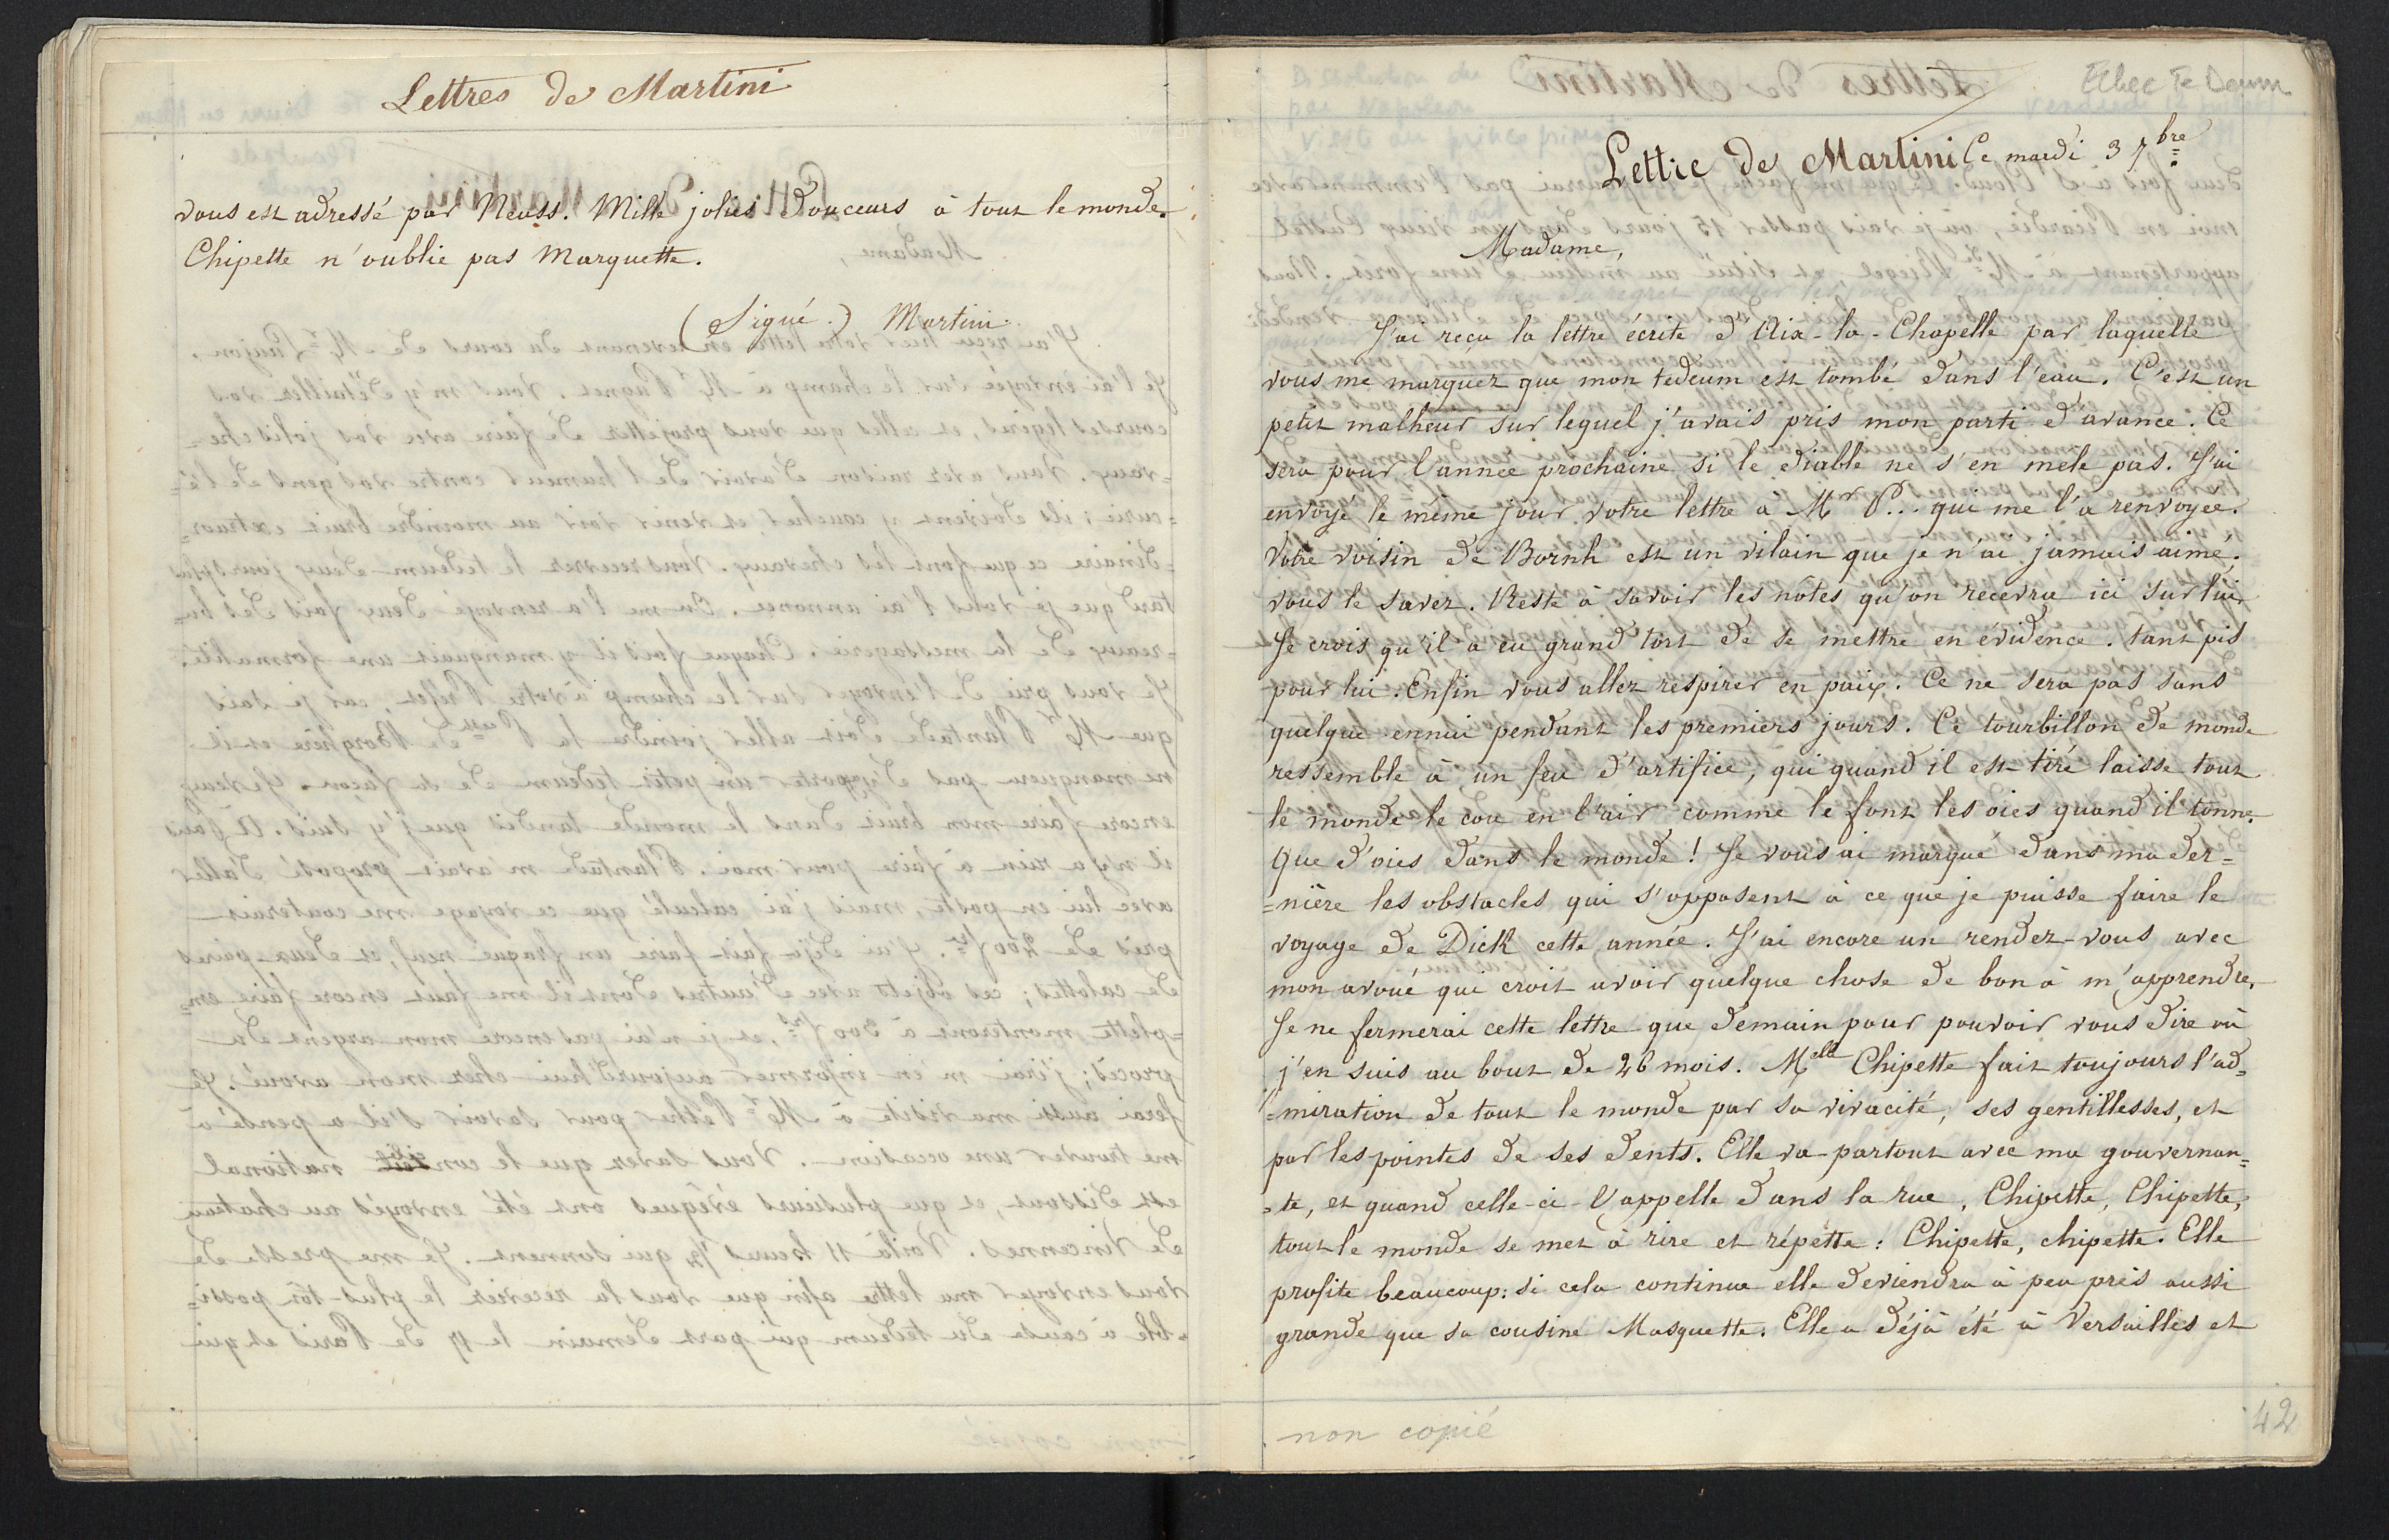 Lettres de Martini
vous est adressé par Neuss. Mille jolies douceurs à tout le monde.
Chipette n'oublie pas Marquette.
(Signé.) Martini.
Echec Te Deum
Lettre de Martini Ce mardi 3 7bre.
Madame,
J'ai reçu la lettre écrite d'Aix-la-Chapelle par laquelle
vous me marquez que mon tedeum est tombé dans l'eau. C'est un
petit malheur sur lequel j'avais pris mon parti d'avance. Ce
sera pour l'année prochaine si le diable ne s'en mele pas. J'ai
envoyé le même jour votre lettre à Mr P... qui me l'a renvoyée.
Votre voisin de Bornh est un vilain que je n'ai jamais aimé.
vous le savez. Reste à savoir les nôtes qu'on recevra ici sur lui
Je crois qu'il a eu grand tort de se mettre en évidence. tant pis
pour lui. Enfin vous allez respirer en paix. Ce ne sera pas sans
quelque ennui pendant les premiers jours. Ce tourbillon de monde
ressemble à un feu d'artifice, qui quand il est tiré laisse tout
le monde le cou en l'air comme le font les oies quand il tonne.
Que d'oies dans le monde! Je vous ai marqué dans ma der=
=nière les obstacles qui s'opposent à ce que je puisse faire le
voyage de Dick cette année. J'ai encore un rendez-vous avec
mon avoué qui croit avoir quelque chose de bon à m'apprendre,
Je ne fermerai cette lettre que demain pour pouvoir vous dire où
j'en suis au bout de 26 mois. Melle Chipette fait toujours l'ad=
=miration de tout le monde par sa vivacité, ses gentillesses, et
par les pointes de ses dents. Elle va partout avec ma gouvernan=
=te, et quand celle-ci l'appelle dans la rue, Chipette, Chipette,
tout le monde se met à rire et répette: Chipette, chipette. Elle
profite beaucoup: si cela continue elle deviendra à peu près aussi
grande que sa cousine Masquette. Elle a déjà été à Versailles et
non copié
42